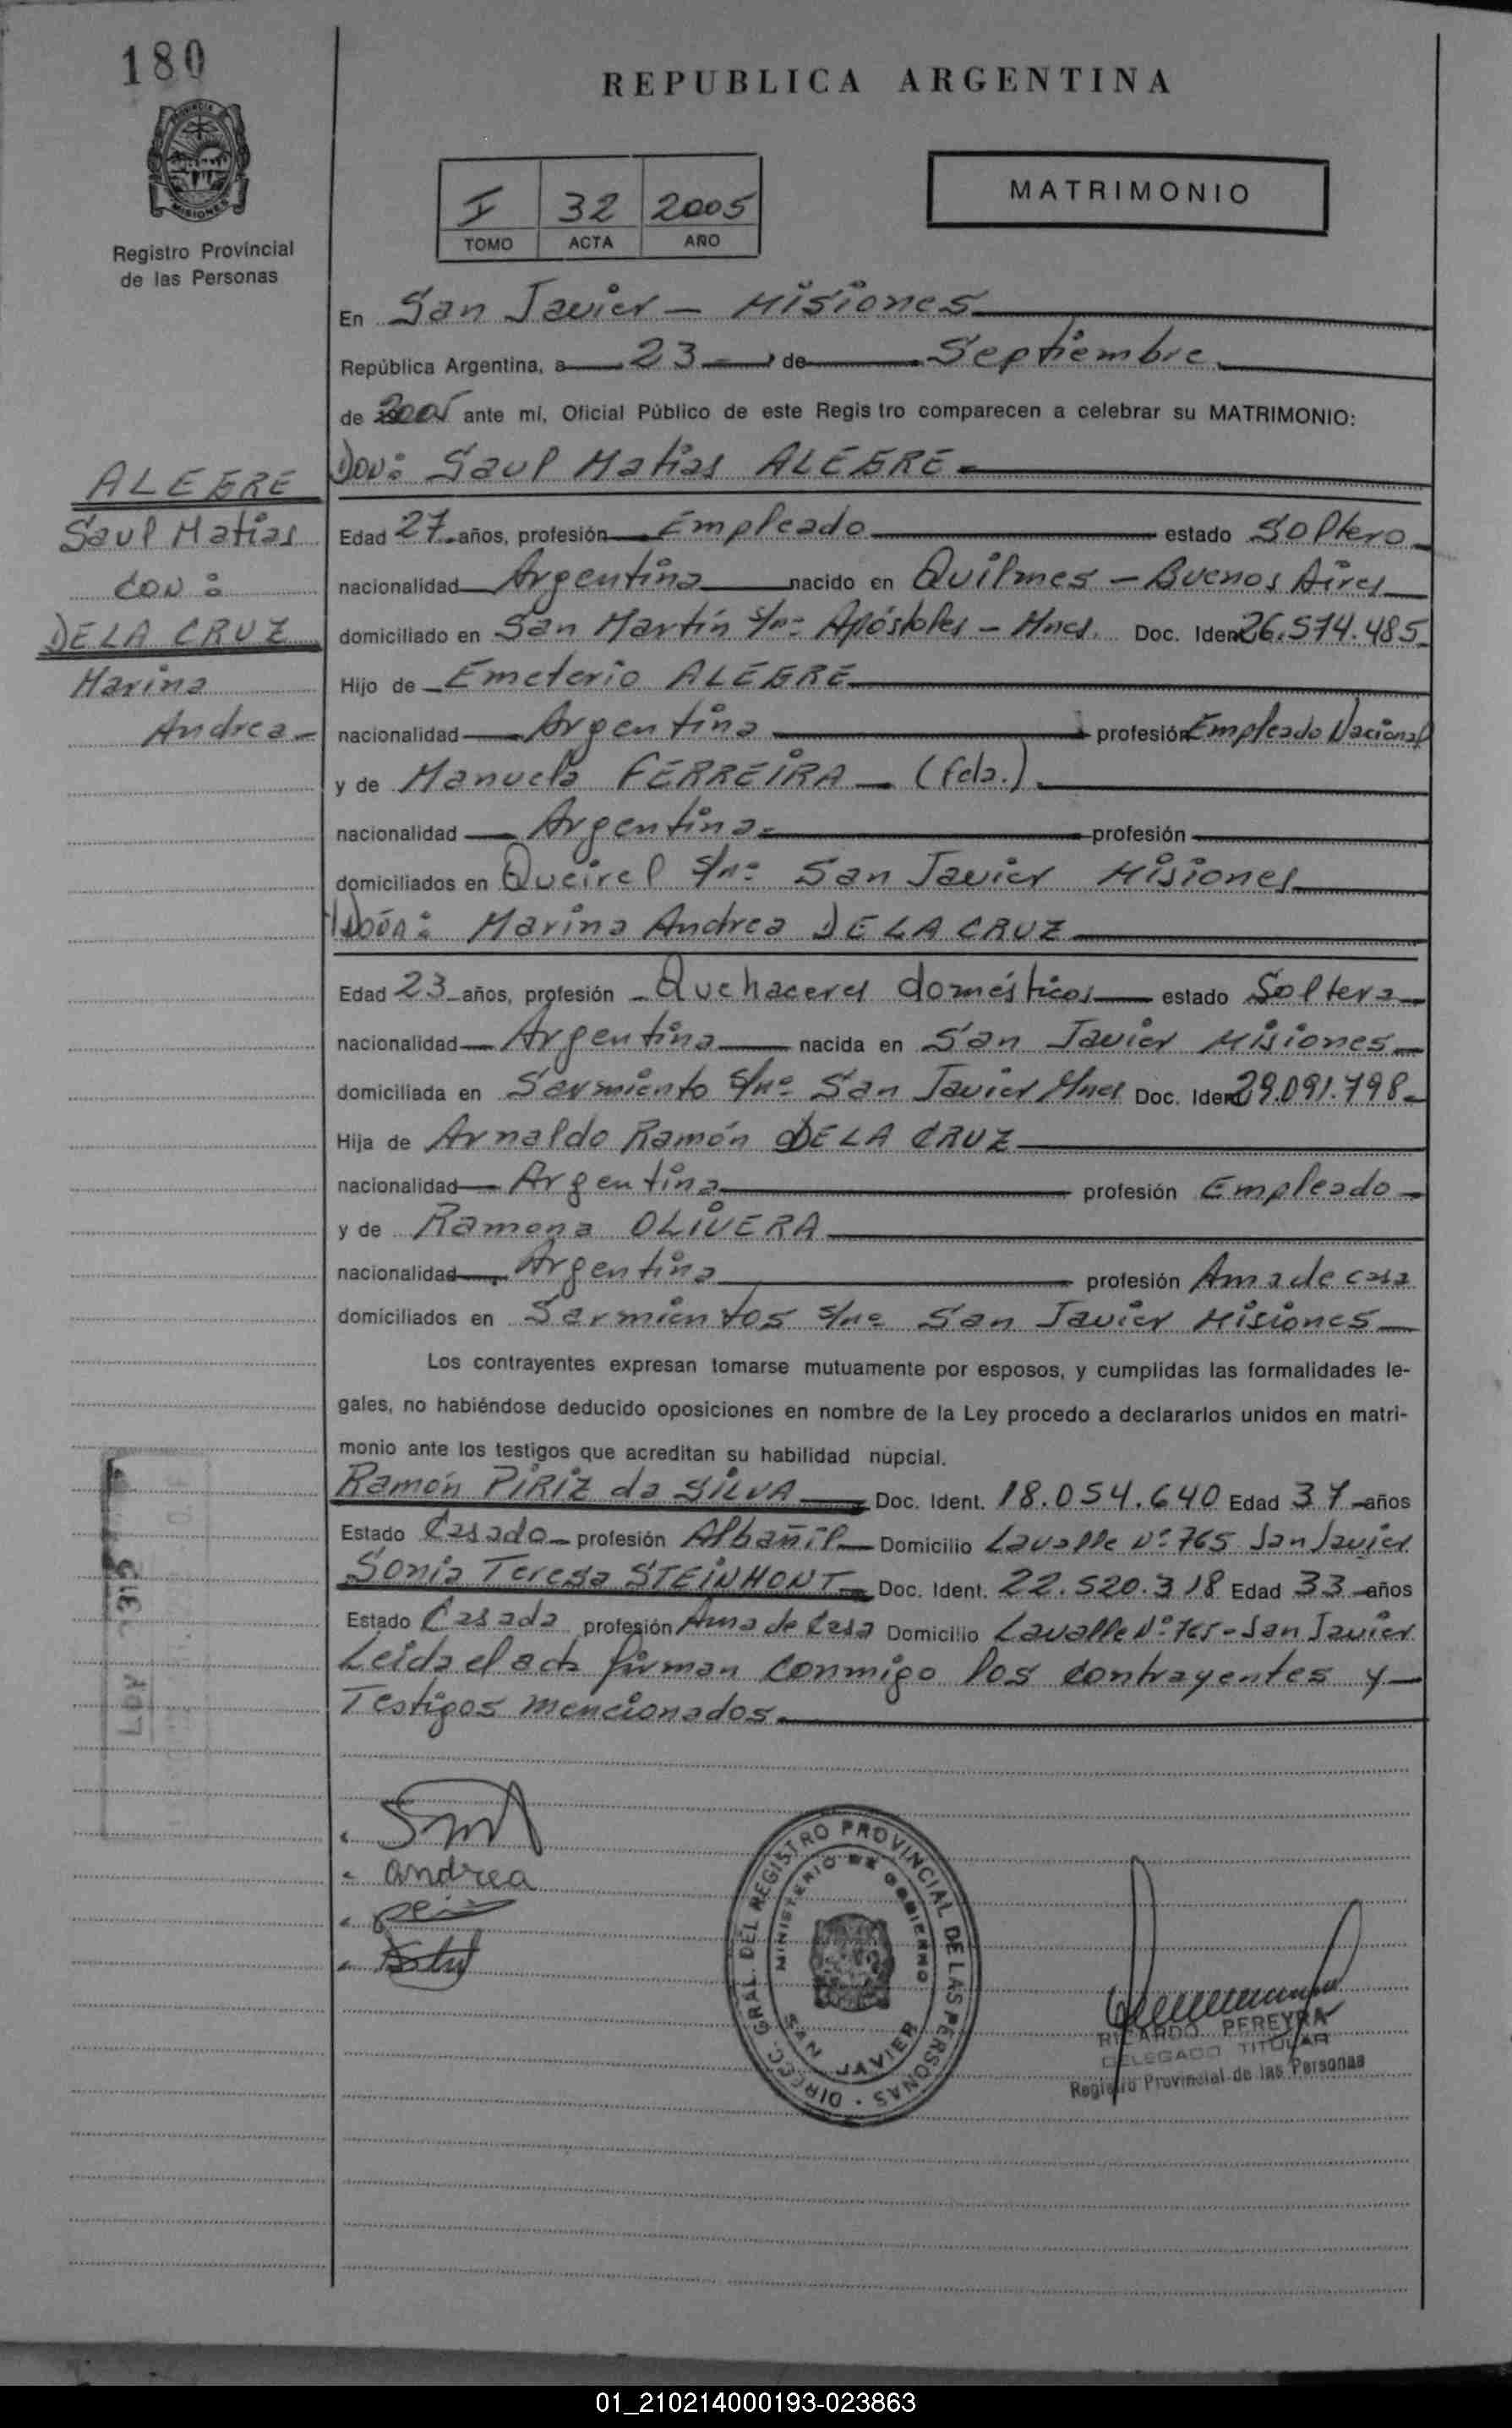 180
REPUBLICA ARGENTINA
PROVINCIA
MISIONES
Registro Provincial
de las Personas
I 32 2005
TOMO ACTA AÑO
MATRIMONIO
En San Javier – Misiones
República Argentina, a 23 de Septiembre
de 2005 ante mí, Oficial Público de este Regis tro comparecen a celebrar su MATRIMONIO:
Don: Saul Matias ALEGRE
ALEGRE
Saul Matias
con:
DE LA CRUZ
Marina
Andrea
Edad 27 años, profesión Empleado estado Soltero
nacionalidad Argentina nacido en Quilmes – Buenos Aires
domiciliado en San Martín s/nº Apóstoles – Mnes. Doc. Iden 26.574.485
Hijo de Emeterio ALEGRE
nacionalidad Argentina profesión Empleado Nacional
y de Manuela FERREIRA – (fda.)
nacionalidad Argentina profesión
domiciliados en Queirel s/nº San Javier Misiones
Doña: Marina Andrea DE LA CRUZ
Edad 23 años, profesión Quehaceres domésticos estado Soltera
nacionalidad Argentina nacida en San Javier Misiones
domiciliada en Sarmiento s/nº San Javier Mnes Doc. Iden 29.091.798
Hija de Arnaldo Ramón DE LA CRUZ
nacionalidad Argentina profesión Empleado
y de Ramona OLIVERA
nacionalidad Argentina profesión Ama de casa
domiciliados en Sarmientos s/nº San Javier Misiones
Los contrayentes expresan tomarse mutuamente por esposos, y cumplidas las formalidades le-
gales, no habiéndose deducido oposiciones en nombre de la Ley procedo a declararlos unidos en matri-
monio ante los testigos que acreditan su habilidad nupcial.
Ramón PIRIZ da SILVA Doc. Ident. 18.054.640 Edad 37 años
Estado Casado profesión Albañil Domicilio Lavalle Nº 765 San Javier
Sonia Teresa STEINHONT Doc. Ident. 22.520.318 Edad 33 años
Estado Casada profesión Ama de Casa Domicilio Lavalle Nº 765 – San Javier
Leida el acta firman conmigo los contrayentes y
Testigos mencionados.
andrea
DIRECC. GRAL. DEL REGISTRO PROVINCIAL DE LAS PERSONAS
MINISTERIO DE GOBIERNO
SAN JAVIER
RICARDO PEREYRA
DELEGADO TITULAR
Registro Provincial de las Personas
01_210214000193-023863